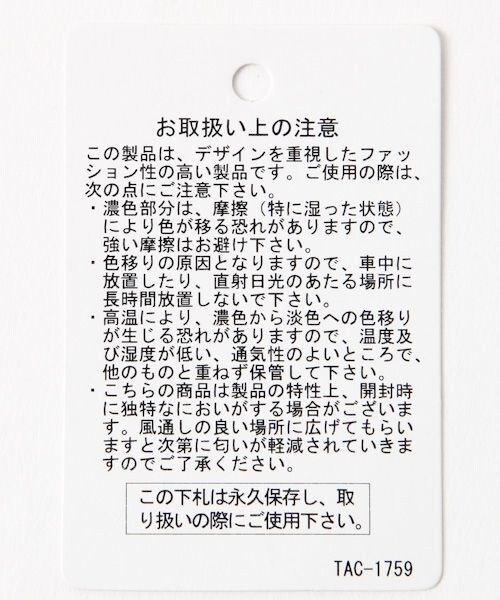 お取扱い上の注意
この製品は、デザインを重視したファッ
ション性の高い製品です。ご使用の際は、
次の点にご注意下さい。
・濃色部分は、摩擦（特に湿った状態）
により色が移る恐れがありますので、
強い摩擦はお避け下さい。
・色移りの原因となりますので、車中に
放置したり、直射日光のあたる場所に
長時間放置しないで下さい。
・高温により、濃色から淡色への色移り
が生じる恐れがありますので、温度及
び湿度が低い、通気性のよいところで、
他のものと重ねず保管して下さい。
・こちらの商品は製品の特性上、開封時
に独特なにおいがする場合がございま
す。風通しの良い場所に広げてもらい
ますと次第に匂いが軽減されていきま
すのでご了承ください。
この下札は永久保存し、取
り扱いの際にご使用下さい。
TAC-1759